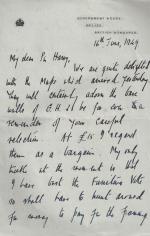 GOVERNMENT HOUSE,
BELIZE,
BRITISH HONDURAS.
16th June, 1949
My dear Dr Henry,
We are quite delighted
with the Maps which arrived yesterday
They will certainly adorn the bare
walls of G.H. &
reminder of your careful
selection. At £15 I regard
them as a bargain. My only
trouble at the moment is that
I have lost the Furniture Vote
so shall have to hunt around
for money to pay for the framing